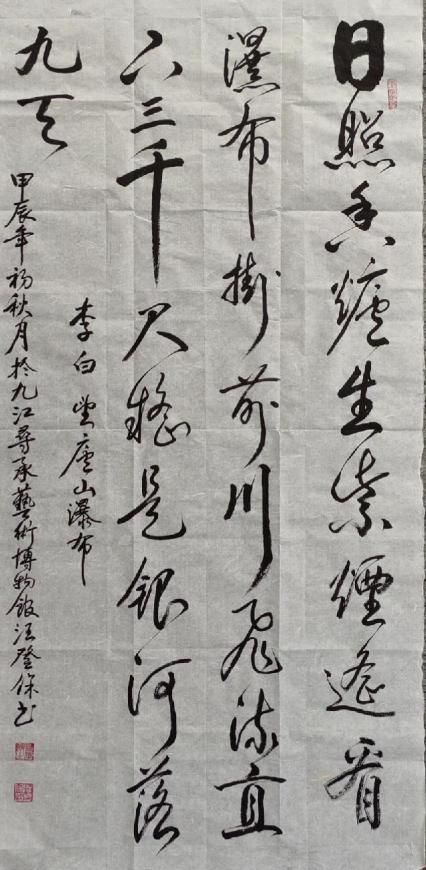 日照香爐生紫煙遙看
瀑布掛前川飛流直
下三千尺疑是銀河落
九天
李白望廬山瀑布
甲辰年初秋月於九江尋承藝術博物館汪登保书